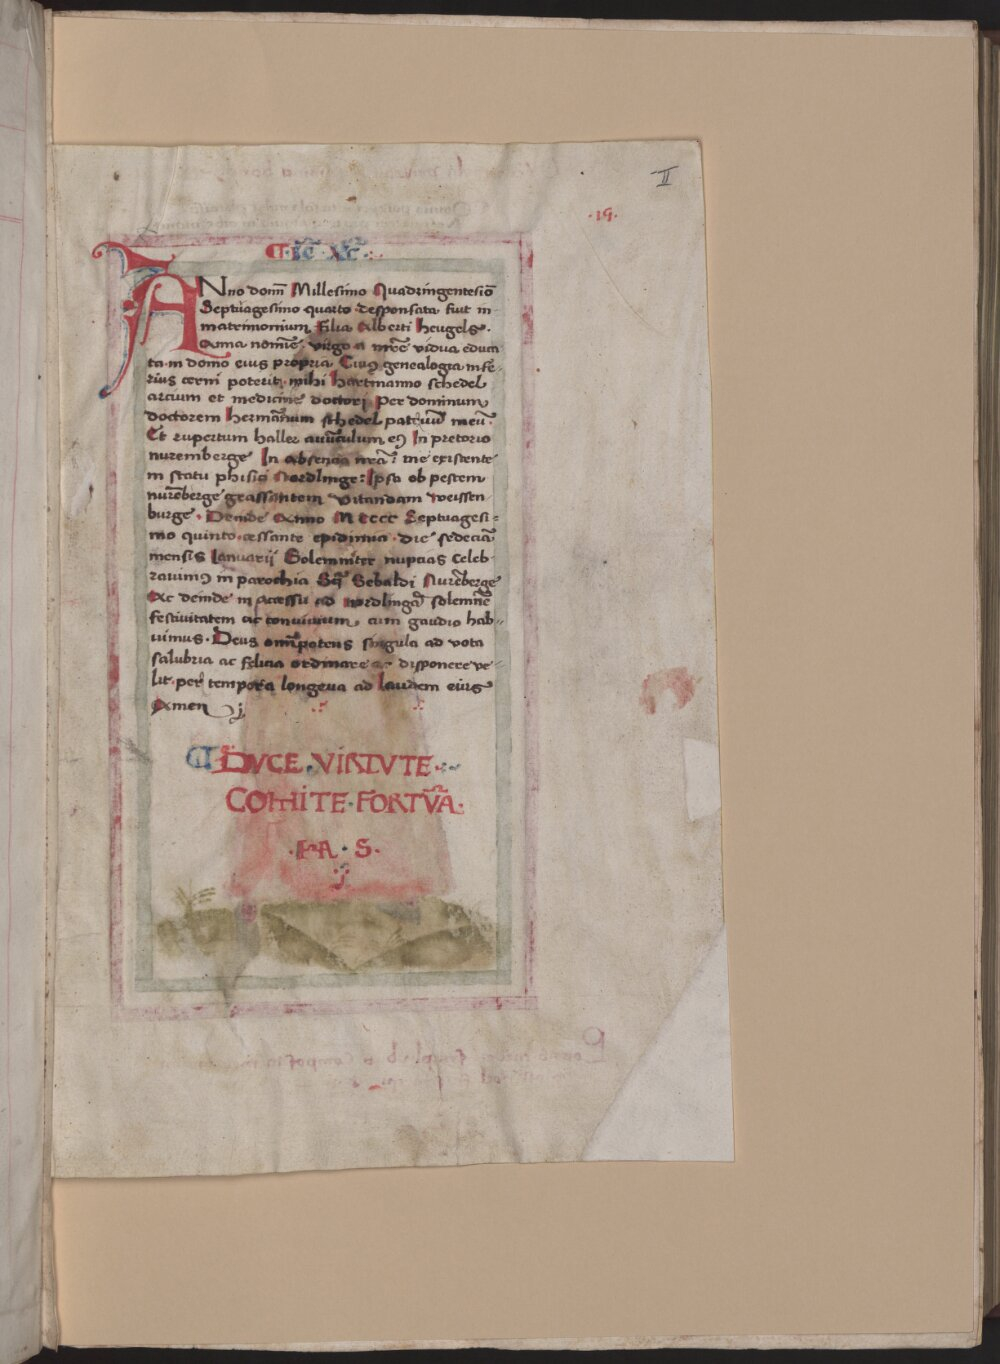 II
.19.
¶ · ic̄ · xc̄ ·
ANno domī Millesimo Quadringentesiō
Septuagesimo quarto desponsata fuit in
matrimonium filia Alberti heugels.
Anna nomīe virgo a mr̄e vidua educa
ta in domo eius propria. Cuiꝰ genealogia infe-
rius cerni poterit, mihi hartmanno schedel
arcium et medicine doctori per dominum
doctorem hermannum schedel patruū meū.
Et rupertum haller auūculum eiꝰ In pretorio
nuremberge In absencia mea: me existente
in statu phisici Nordlinge: Ipsa ob pestem
nurēberge grassantem vitandam weissen
burge. Deinde Anno Mcccc Septuagesi-
mo quinto cessante epidimia die sedeciā
mensis Ianuarij Solemniter nupcias celeb-
rauimꝰ in parochia Sc̄i Sebaldi Nurēberge
Ac deinde in accessu ad nordlingā solemnē
festivitatem ac convivium, cum gaudio hab-
uimus. Deus omīpotens singula ad vota
salubria ac felicia ordinare ac disponere ve-
lit per tempora longeva ad laudem eius
Amen
¶ DVCE · VIRTVTE ·
COMITE · FORTV̄A ·
· HA · S ·